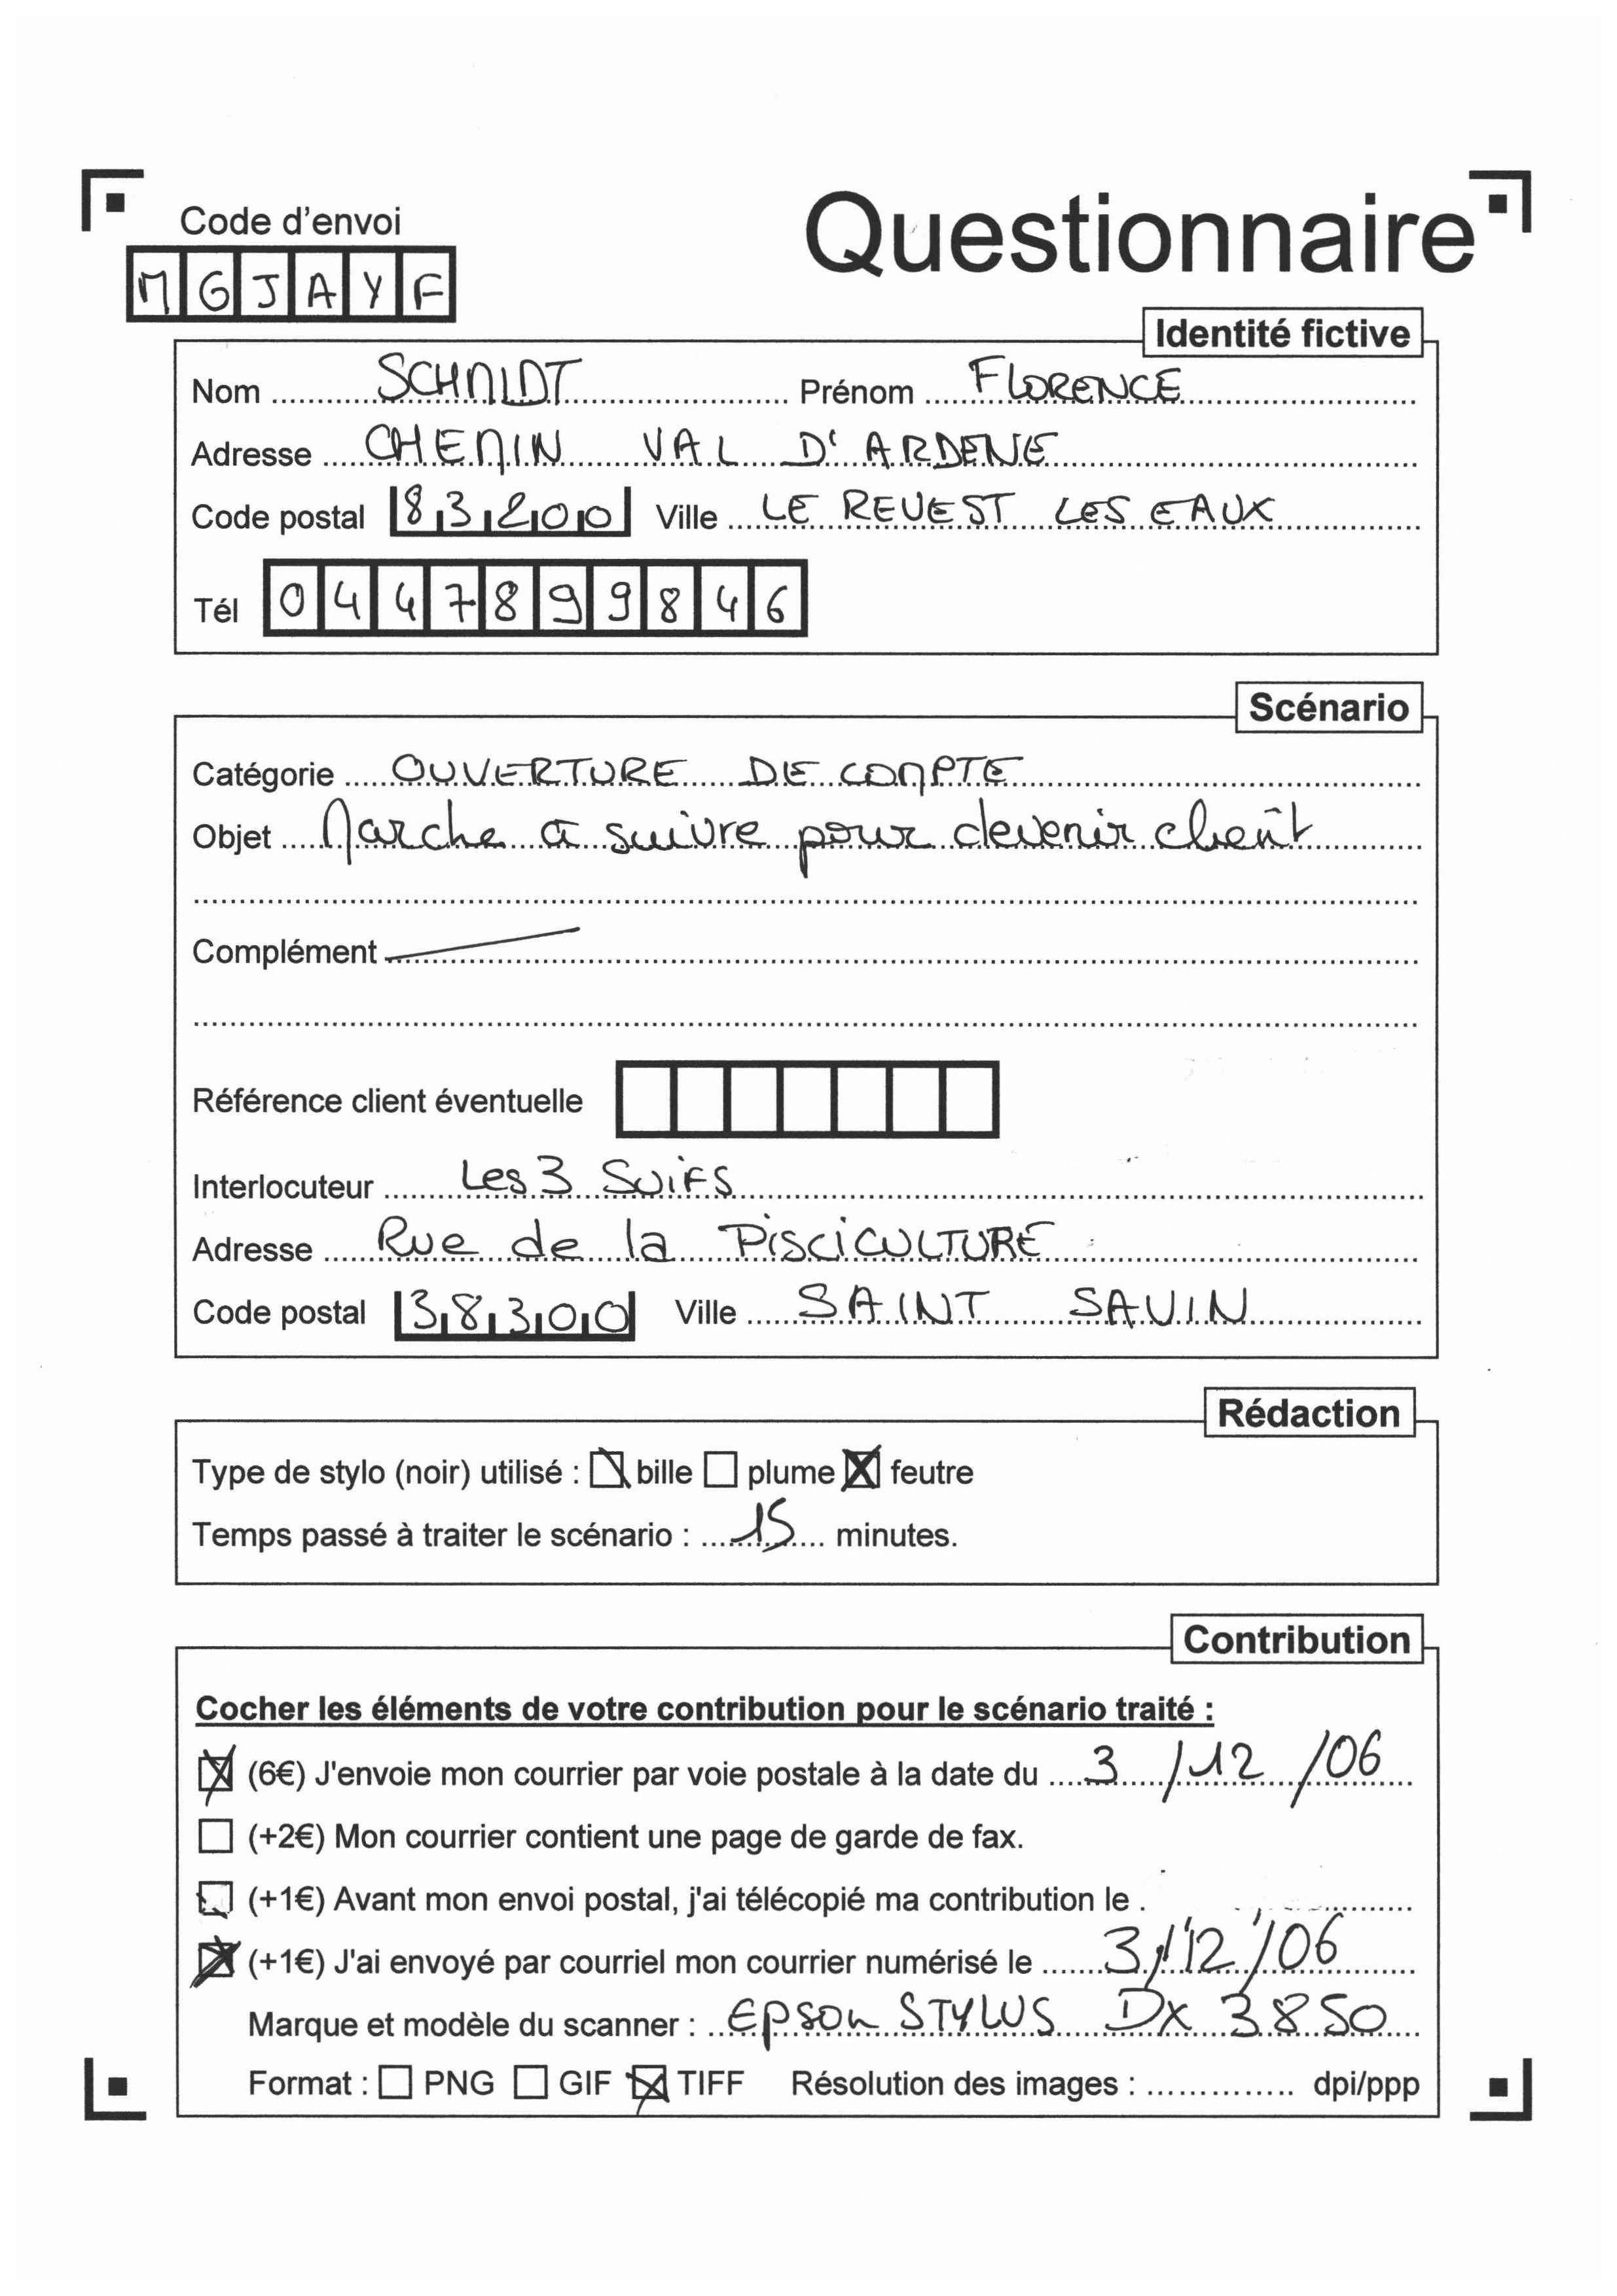 Code d'envoi
Questionnaire
MGJAYF
Identité fictive
Nom SCHMIDT Prénom FLORENCE
Adresse CHEMIN VAL D'ARDENE
Code postal 83200 Ville LE REVEST LES EAUX
Tél 0447899846
Scénario
Catégorie OUVERTURE DE COMPTE
Objet Marche à suivre pour devenir client
Complément
Référence client éventuelle
Interlocuteur Les 3 Suifs
Adresse Rue de la PISCICULTURE
Code postal 38300 Ville SAINT SAVIN
Rédaction
Type de stylo (noir) utilisé : bille plume feutre
Temps passé à traiter le scénario : 15 minutes.
Contribution
Cocher les éléments de votre contribution pour le scénario traité :
(6€) J'envoie mon courrier par voie postale à la date du 3/12/06
(+2€) Mon courrier contient une page de garde de fax.
(+1€) Avant mon envoi postal, j'ai télécopié ma contribution le
(+1€) J'ai envoyé par courriel mon courrier numérisé le 3/12/06
Marque et modèle du scanner : EPSON STYLUS DX 3850
Format : PNG GIF TIFF Résolution des images : dpi/ppp